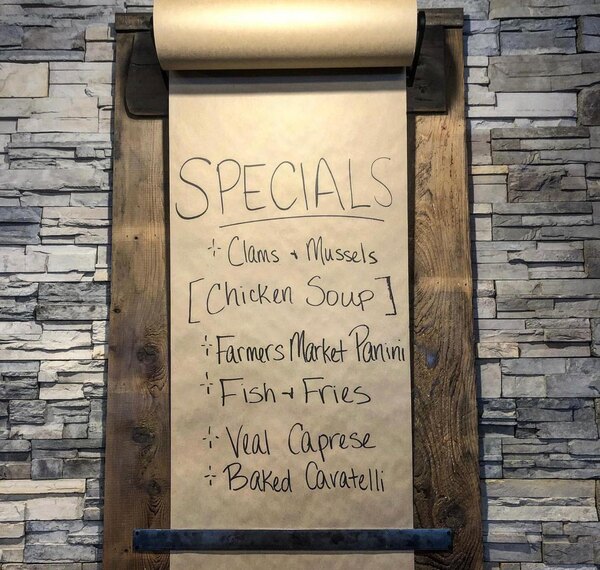 SPECIALS
⊹ Clams + Mussels
[Chicken Soup]
⊹ Farmers Market Panini
⊹ Fish + Fries
⊹ Veal Caprese
⊹ Baked Cavatelli